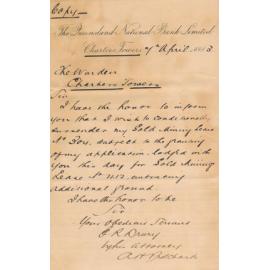 Copy
The Queensland National Bank Limited
Charters Towers 7th April 1883
The Warden
Charters Towers
Sir
I have the honor to inform
you that I wish to conditionally
surrender my Gold Mining Lease
No subject to the granting
of my application lodged with
you this day for Gold Mining
Lease No embracing
additional ground.
I have the honor to be
Sir
Your obedient Servant
E R Drury
by his attorney
A H Pritchard